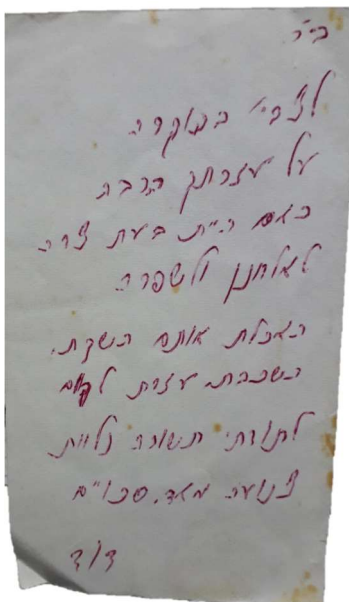 ב"ה
לצבי בתוקרה
על עזרתך הרבה
כאם היית בעת צרה
לאלחנן ולשפרה
האכלת אותם השקת
השכבת עזרת לקום
לתורתי תשורה נלוית
צנועה מאד
דוד